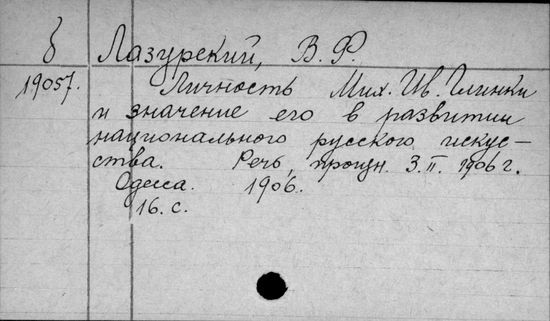 б Лазурский, В. Ф.
19057. Личность Мих. Ив. Глинки
и значение его в развитии
национального русского искус-
ства. Речь, произн. 3.II. 1906 г.
Одесса. 1906.
16. с.